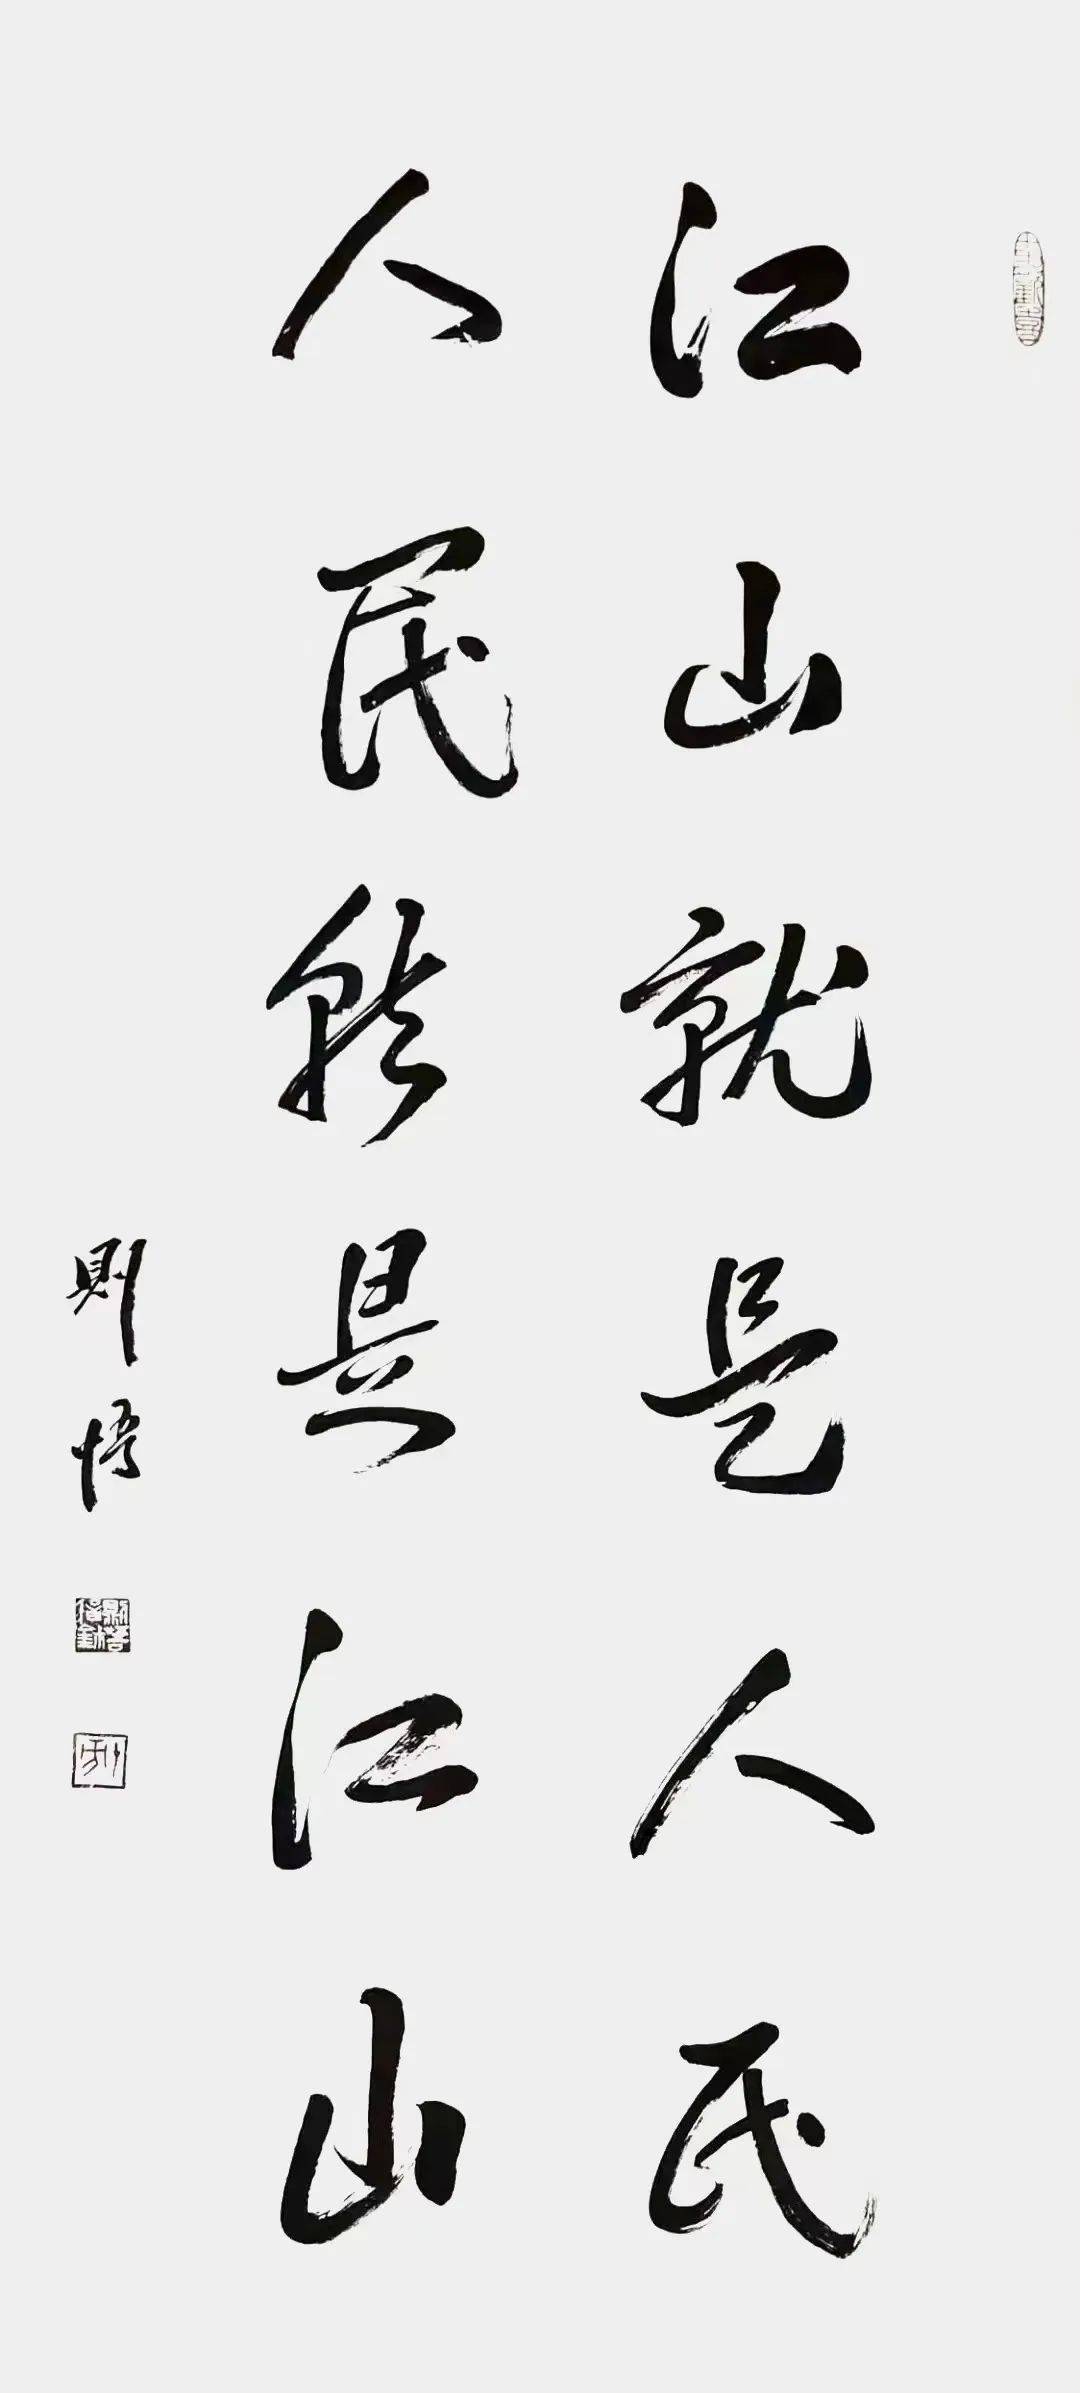 江山就是人民
人民就是江山
则悟